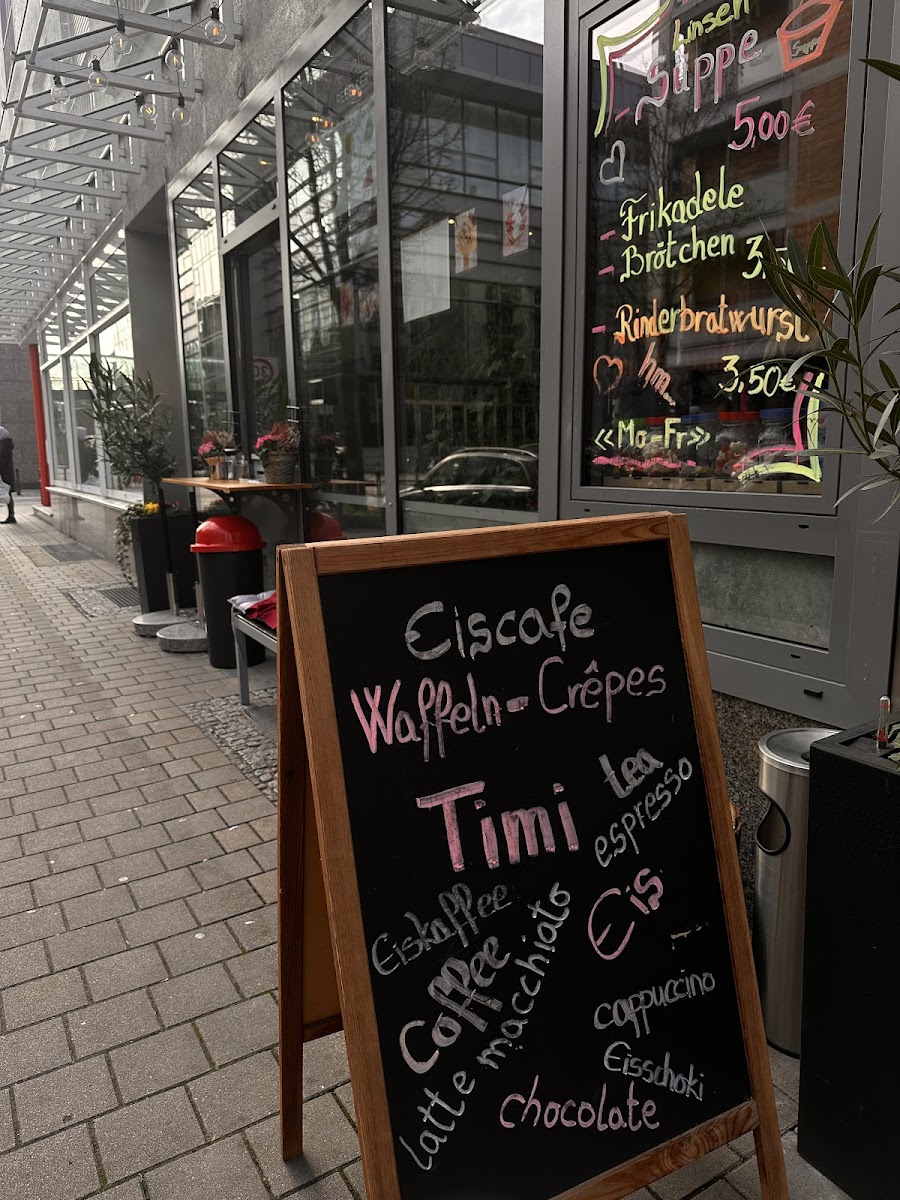 Linsen
- Suppe
Suppe
5,00€
- Frikadele
- Brötchen
- Rinderbratwurst
hm
3,50€
<<Mo-Fr>>
Eiscafe
Waffeln-Crêpes
Timi
tea
espresso
Eis
Eiskaffee
Coffee
latte macchiato
cappuccino
Eisschoki
chocolate